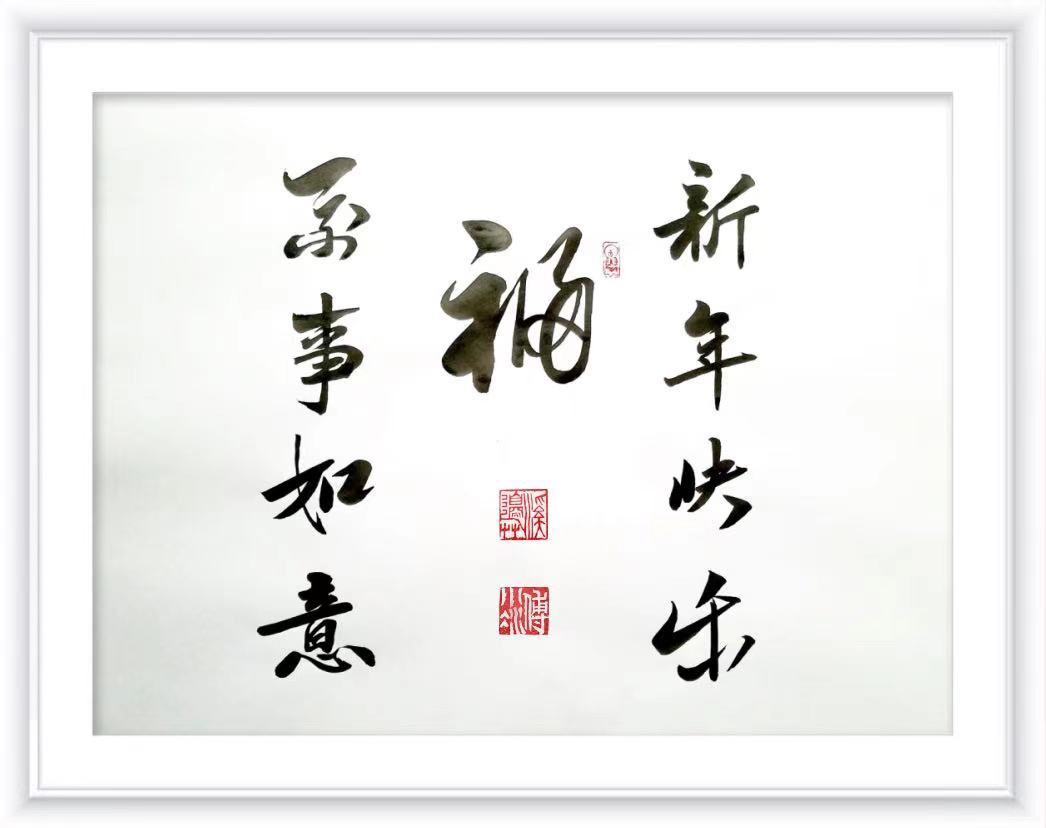 新年快乐
福
万事如意